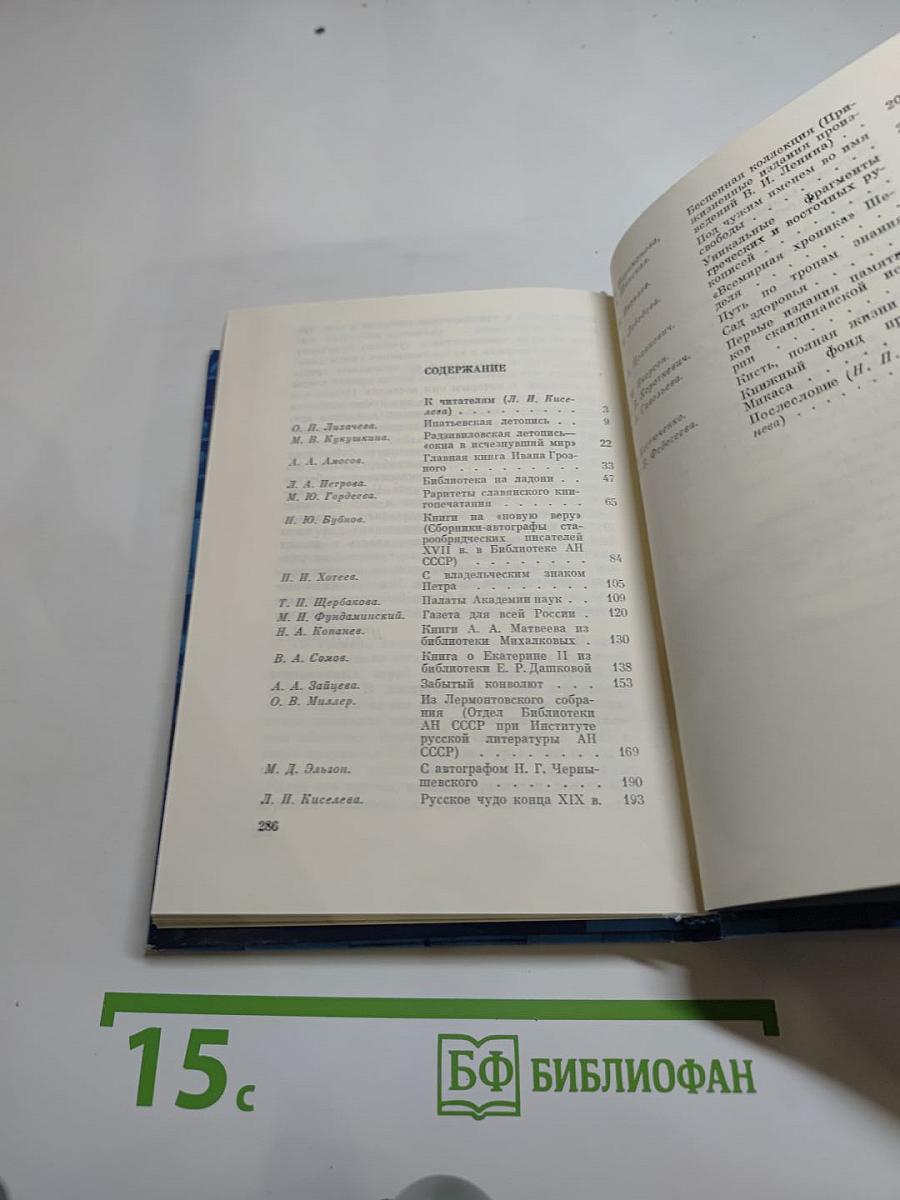 СОДЕРЖАНИЕ
К читателям (Л. И. Кисе-
лева) . . . . . . . . . 3
О. П. Лихачева. Ипатьевская летопись . . 9
М. В. Кукушкина. Радзивиловская летопись—
«окна в исчезнувший мир» 22
А. А. Амосов. Главная книга Ивана Гроз-
ного . . . . . . . . 33
Л. А. Петрова. Библиотека на ладони . . 47
М. Ю. Гордеева. Раритеты славянского кни-
гопечатания . . . . . . 65
Н. Ю. Бубнов. Книги на «новую веру»
(Сборники-автографы ста-
рообрядческих писателей
XVII в. в Библиотеке АН
СССР) . . . . . . . . 84
И. Н. Хотеев. С владельческим знаком
Петра . . . . . . . . 105
Т. П. Щербакова. Палаты Академии наук . . 109
М. И. Фундаминский. Газета для всей России . 120
Н. А. Копанев. Книги А. А. Матвеева из
библиотеки Михалковых . 130
В. А. Сомов. Книга о Екатерине II из
библиотеки Е. Р. Дашковой 138
А. А. Зайцева. Забытый конволют . . . 153
О. В. Миллер. Из Лермонтовского собра-
ния (Отдел Библиотеки
АН СССР при Институте
русской литературы АН
СССР) . . . . . . . . 169
М. Д. Эльзон. С автографом Н. Г. Черны-
шевского . . . . . . . 190
Л. И. Киселева. Русское чудо конца XIX в. 193
286
Бесценная коллекция (При-
жизненные издания произ-
ведений В. И. Ленина) . .
Под чужим именем во имя
свободы . . . . . . .
Уникальные фрагменты
греческих и восточных ру-
кописей . . . . . . .
«Всемирная хроника» Ше-
деля . . . . . . . .
Путь по тропам знания
Сад здоровья . . . . .
Первые издания памятни
ков скандинавской ис
рии . . . . . . . .
Кисть, полная жизни
Книжный фонд пр
Микаса . . . . . .
Послесловие (Н. П.
нева) . . . . . . .
Короткевич.
Савельева.
Федосеева.
15 с
БФ БИБЛИОФАН